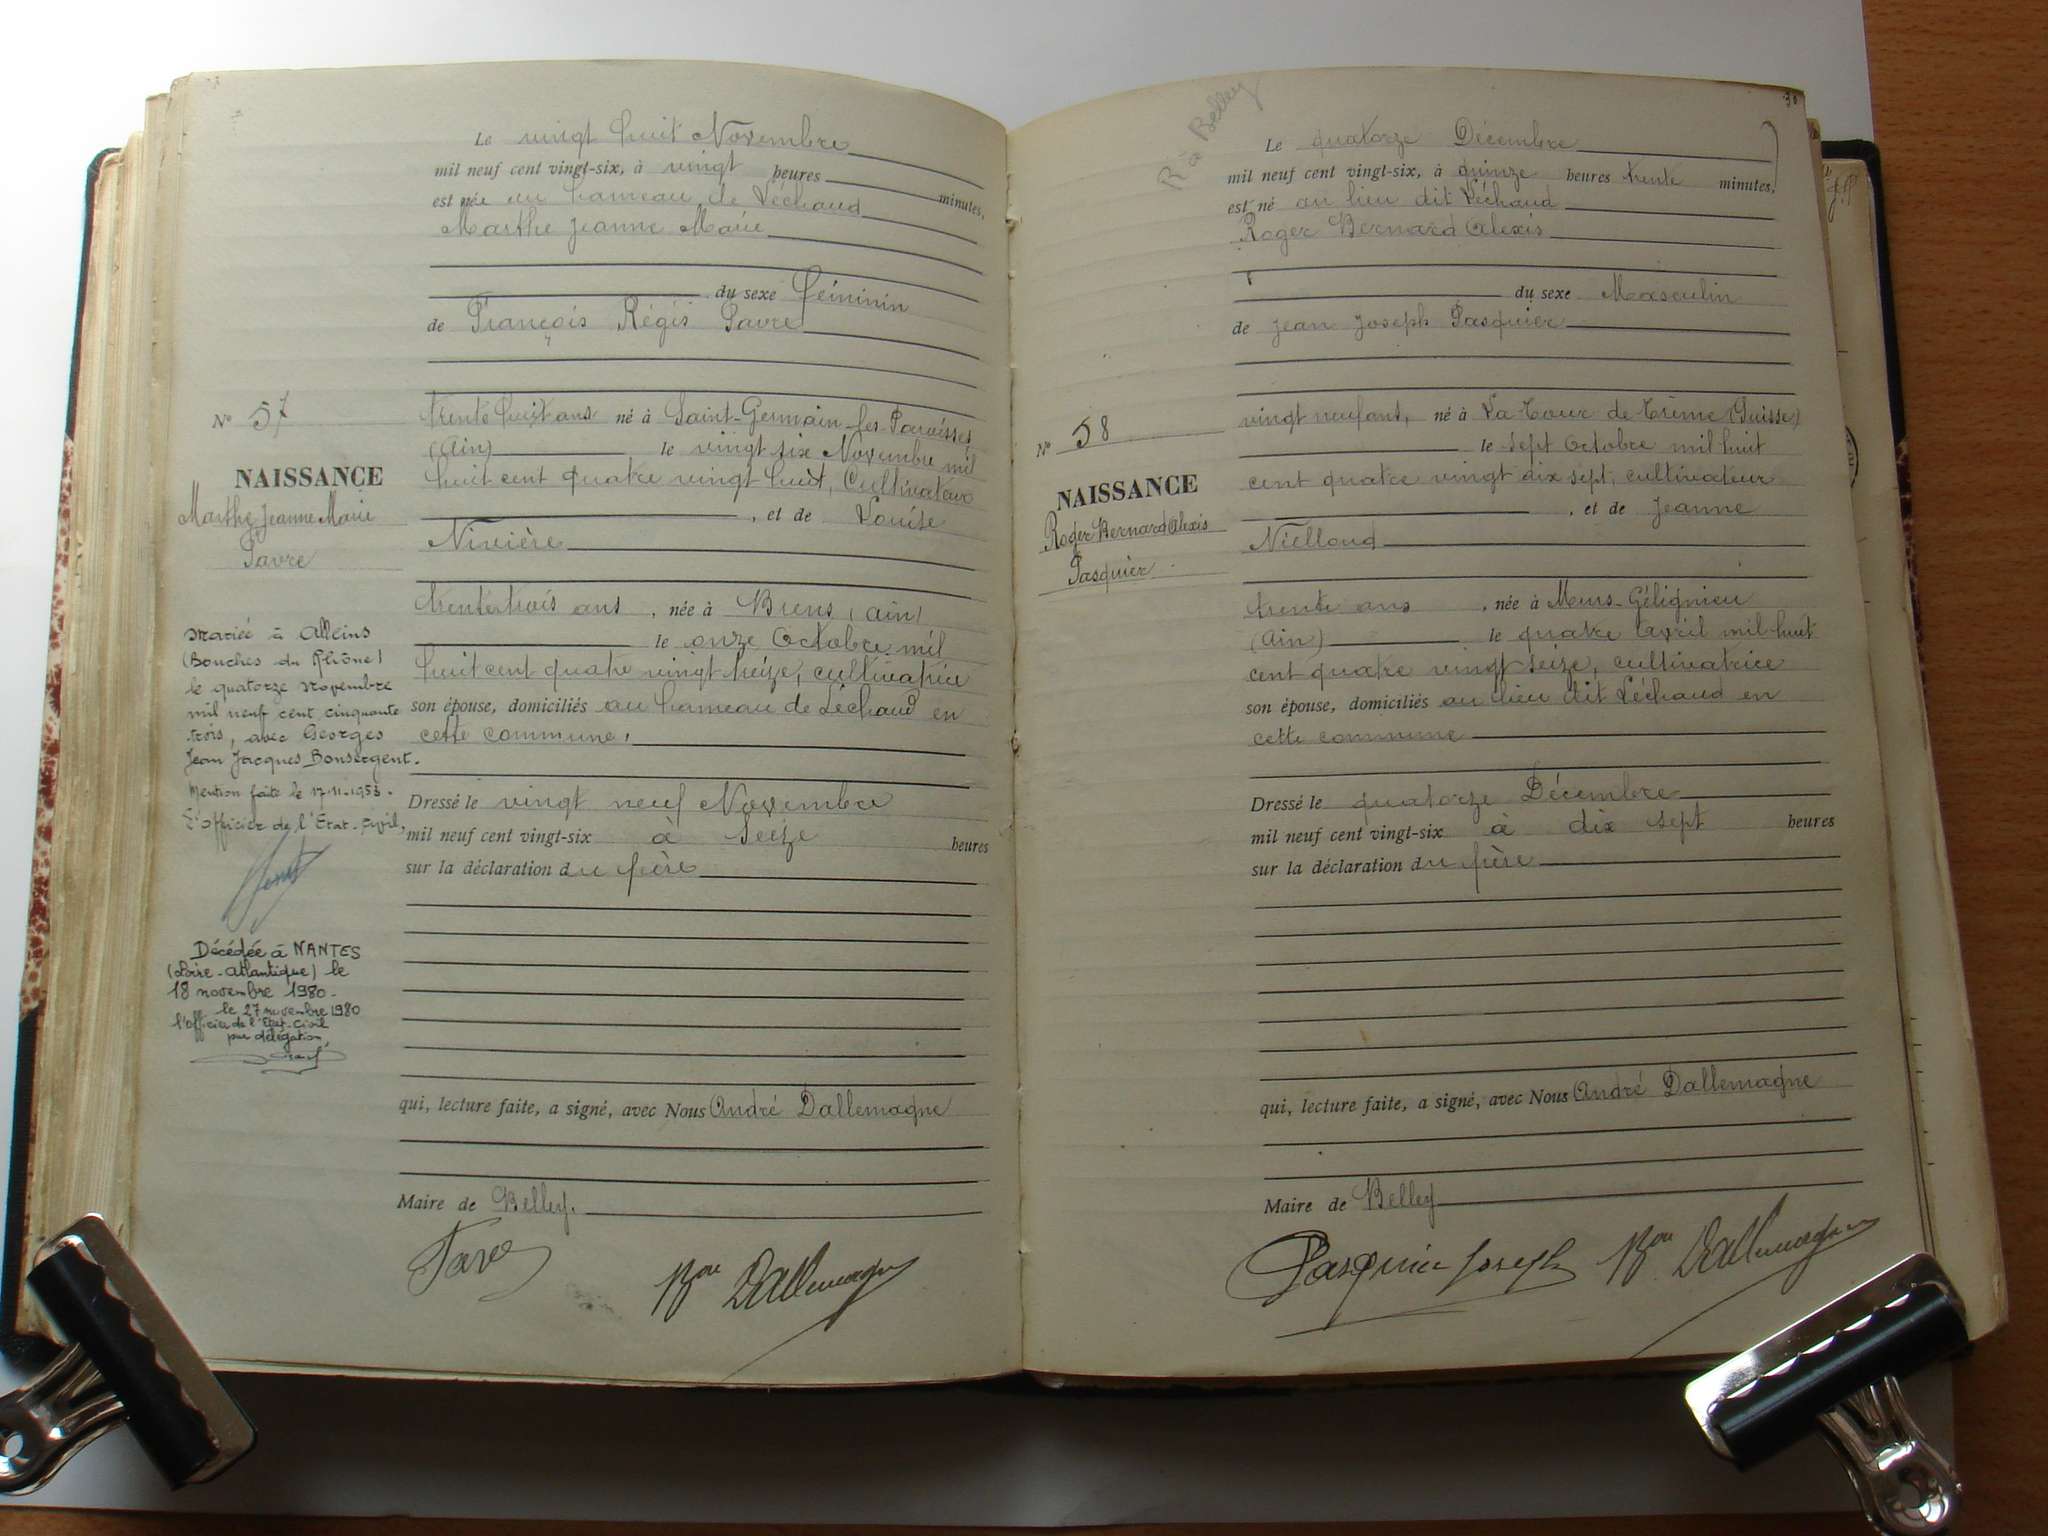 Le vingt huit Novembre
mil neuf cent vingt-six, à vingt heures
minutes,
est née au hameau de Léchaud
Marthe Jeanne Marie
du sexe féminin
de François Régis Favre
trente huit ans né à Saint-Germain-les-Paroisses
(Ain) le vingt six Novembre mil
huit cent quatre vingt huit, Cultivateur
, et de Louise
Nivière
trente trois ans , née à Brens (Ain)
le onze Octobre mil
huit cent quatre vingt treize, cultivatrice
son épouse, domiciliés au hameau de Léchaud en
cette commune,
Dressé le vingt neuf Novembre
mil neuf cent vingt-six à seize heures
sur la déclaration du père
qui, lecture faite, a signé, avec Nous André Dallemagne
Maire de Belley.
Favre
Bon Dallemagne
N° 57
NAISSANCE
Marthe Jeanne Marie
Favre
Mariée à Alleins
(Bouches du Rhône)
le quatorze Novembre
mil neuf cent cinquante
trois, avec Georges
Jean Jacques Bonsergent.
Mention faite le 17-11-1953.
L'officier de l'Etat-Civil,
Décédée à NANTES
(Loire-Atlantique) le
18 novembre 1980.
le 27 novembre 1980
l'officier de l'Etat-Civil
par délégation,
R à Belley
30
Le quatorze Décembre
mil neuf cent vingt-six, à quinze heures trente minutes,
est né au lieu dit Léchaud
Roger Bernard Alexis
du sexe Masculin
de Jean Joseph Pasquier
vingt neuf ans, né à La Tour de Trême (Suisse)
le sept Octobre mil huit
cent quatre vingt dix sept, cultivateur
, et de Jeanne
Nielloud
trente ans , née à Murs-Gélignieu
(Ain) le quatre Avril mil huit
cent quatre vingt seize, cultivatrice
son épouse, domiciliés au lieu dit Léchaud en
cette commune
Dressé le quatorze Décembre
mil neuf cent vingt-six à dix sept heures
sur la déclaration du père
qui, lecture faite, a signé, avec Nous André Dallemagne
Maire de Belley
Pasquier Joseph
Bon Dallemagne
N° 58
NAISSANCE
Roger Bernard Alexis
Pasquier